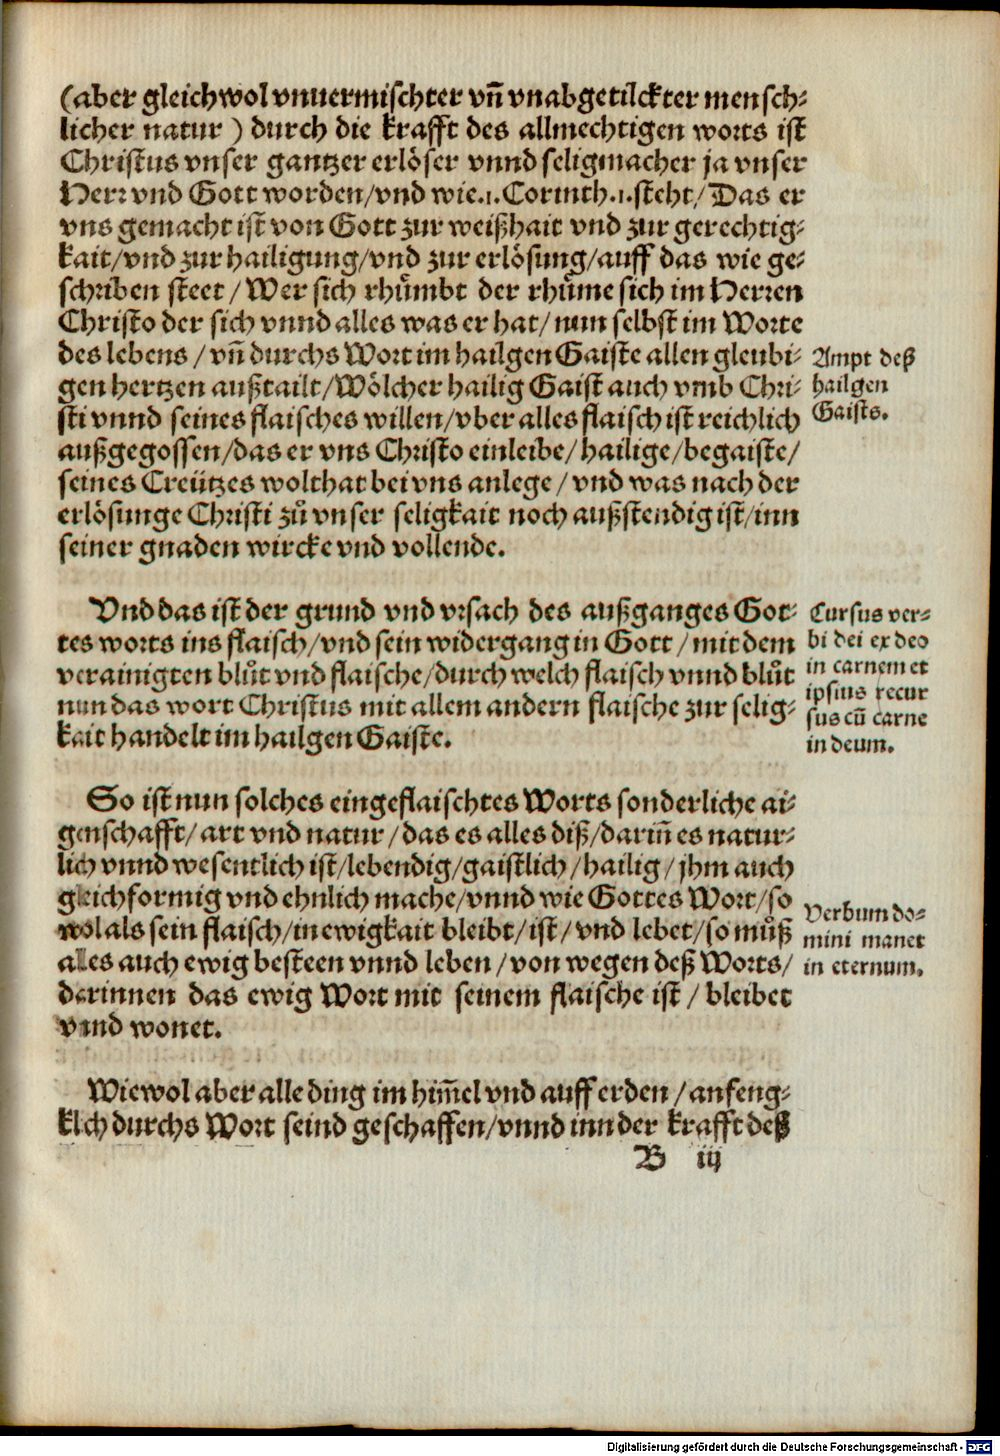 (aber gleichwol vnuermischter vñ vnabgetilckter mensch⸗
licher natur ) durch die krafft des allmechtigen worts ist
Christus vnser gantzer erlöser vnnd seligmacher ja vnser
Herr vnd Gott worden/vnd wie.1.Corinth.1.steht/Das er
vns gemacht ist von Gott zur weißhait vnd zur gerechtig⸗
kait/vnd zur hailigung/vnd zur erlösung/auff das wie ge⸗
schriben steet / Wer sich rhuͤmbt der rhuͤme sich im Herren
Christo der sich vnnd alles was er hat/ nun selbst im Worte
des lebens / vñ durchs Wort im hailgen Gaiste allen gleubi⸗
gen hertzen außtailt/Wölcher hailig Gaist auch vmb Chri⸗
sti vnnd seines flaisches willen/vber alles flaisch ist reichlich
außgegossen/das er vns Christo einleibe/ hailige/begaiste/
seines Creützes wolthat bei vns anlege / vnd was nach der
erlösunge Christi zuͦ vnser seligkait noch außstendig ist/inn
seiner gnaden wircke vnd vollende.
Ampt deß
hailgen
Gaists.
Vnd das ist der grund vnd vrsach des außganges Got⸗
tes worts ins flaisch/vnd sein widergang in Gott / mit dem
verainigten bluͦt vnd flaische/durch welch flaisch vnnd bluͦt
nun das wort Christus mit allem andern flaische zur selig⸗
kait handelt im hailgen Gaiste.
Cursus ver⸗
bi dei ex deo
in carnem et
ipsius recur
sus cū carne
in deum.
So ist nun solches eingeflaischtes Worts sonderliche ai⸗
genschafft/ art vnd natur / das es alles diß/darin̄ es natur⸗
lich vnnd wesentlich ist/lebendig/gaistlich /hailig / jhm auch
gleichformig vnd ehnlich mache/vnnd wie Gottes Wort/so
wol als sein flaisch/in ewigkait bleibt/ist/ vnd lebet/so muͦß
alles auch ewig besteen vnnd leben / von wegen deß Worts/
darinnen das ewig Wort mit seinem flaische ist / bleibet
vnnd wonet.
Verbum do⸗
mini manet
in eternum.
Wiewol aber alle ding im him̄el vnd auff erden / anfeng⸗
klich durchs Wort seind geschaffen/vnnd inn der krafft deß
B iij
Digitalisierung gefördert durch die Deutsche Forschungsgemeinschaft - DFG